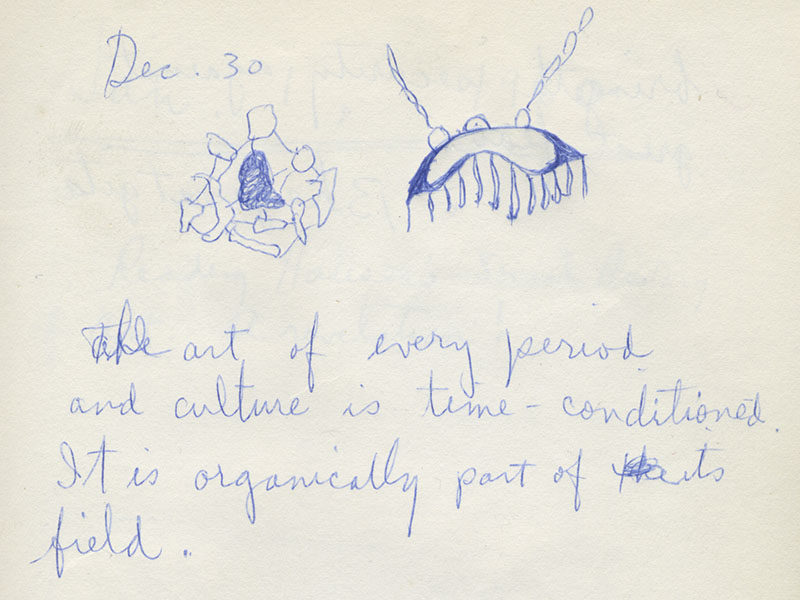 Dec. 30
The art of every period
and culture is time-conditioned.
It is organically part of its
field.